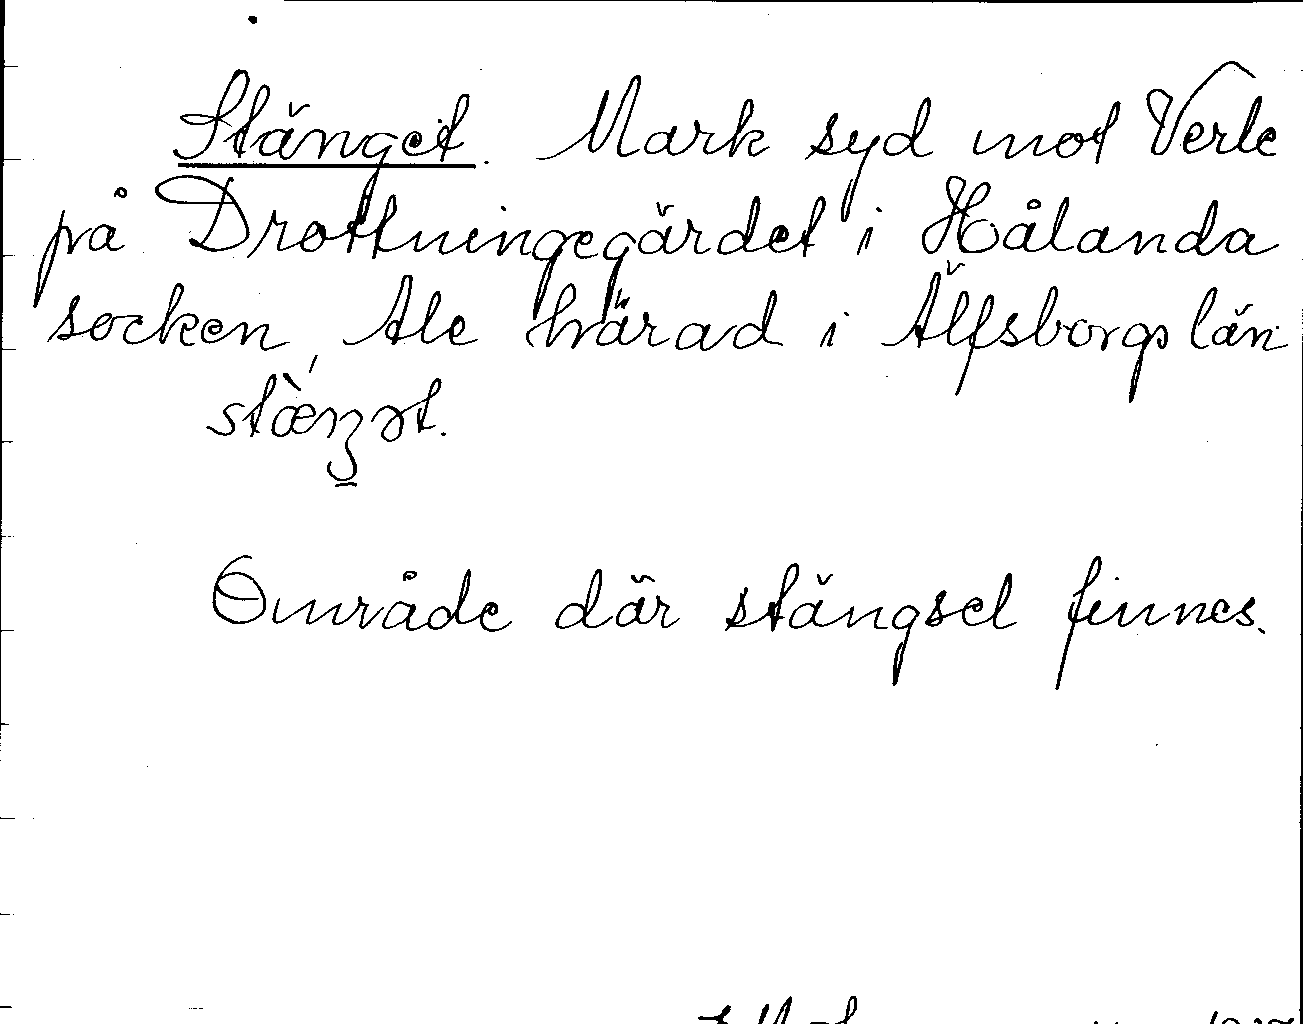 Stänget. Mark syd mot Verle
på Drottningegärdet i Hålanda
socken, Ale härad i Älfsborgs län
Område där stängsel finnes.